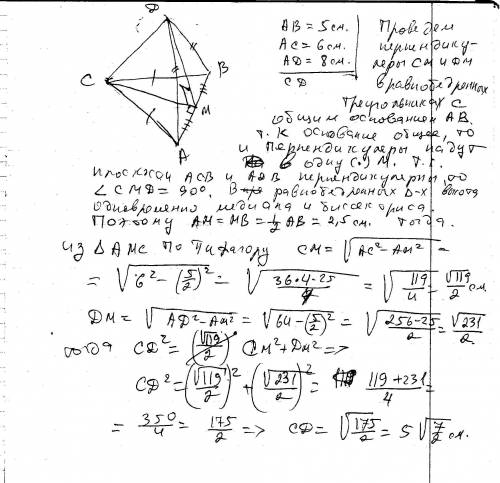 D
C
B
M
A
AB = 5 см.
AC = 6 см.
AD = 8 см.
CD
Проведем
перпендику-
ляры CM и DM
в равнобедренных
треугольниках с
общим основанием AB.
т.к основание общее, то
и перпендикуляры падут
в одну (.) M. т.к.
плоскости ACB и ADB перпендикулярны, то
∠CMD = 90°. В равнобедренных Δ-х высота
одновременно медиана и биссектриса.
Поэтому AM = MB = 1/2 AB = 2,5 см. тогда.
из ΔAMC по Пифагору CM = √(AC² - AM²) =
= √(6² - (5/2)²) = √((36·4-25)/4) = √(119/4) = √119/2 см
DM = √(AD² - AM²) = √(64 - (5/2)²) = √((256-25)/2) = √231/2
тогда CD² = CM² + DM² =>
CD² = (√119/2)² + (√231/2)² = (119+231)/4 =
= 350/4 = 175/2 => CD = √(175/2) = 5√(7/2) см.